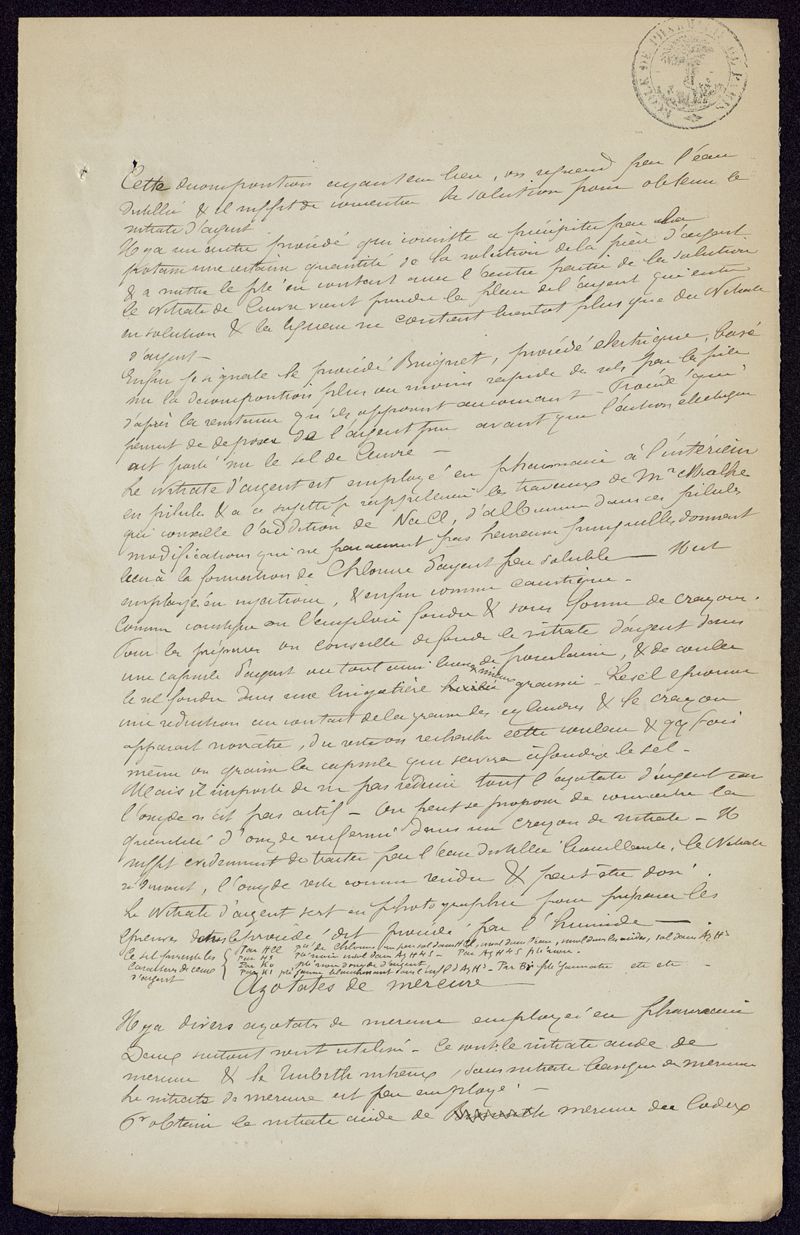 ECOLE DE PHARMACIE DE PARIS
Cette décomposition ayant eu lieu, on reprend par l'eau
distillée & il suffit de concentrer la solution pour obtenir le
nitrate d'argent
Il y a un autre procédé qui consiste a précipiter par la
potasse une certaine quantité de la solution de la pièce d'argent
& a mettre le pté en contact avec l'autre partie de la solution
le nitrate de Cuivre vient prendre la place de l'argent qui entre
en solution & la liqueur ne contient bientôt plus que du Nitrate
d'argent —
Enfin je signale le procédé Buignet, procédé électrique, basé
sur la décomposition plus ou moins rapide des sels par la pile
d'après la résistance qu'ils opposent au courant — Procédé qui
permet de déposer de l'argent pur avant que l'action électrique
ait porté sur le sel de Cuivre —
Le nitrate d'argent est employé en pharmacie à l'intérieur
en pilule & a ce sujet je rappellerai les travaux de Mr
qui conseille l'addition de NaCl, d'albumine dans ces pilules
modifications qui ne paraissent pas heureuses puisqu'elles donnent
lieu à la formation de Chlorure d'argent peu soluble — Il est
employé en injections, & enfin comme caustique —
Comme caustique on l'emploie fondu & sous forme de crayons.
Pour les préparer on conseille de fondre le nitrate d'argent dans
une capsule d'argent ou tout aussi bien de porcelaine, & de couler
le sel fondu dans une lingotière mieux graissée — Le sel éprouve
une réduction au contact de la graisse des cylindres & le crayon
apparait noirâtre, du reste on recherche cette couleur & qq fois
même on graisse la capsule qui servira à fondre le sel —
Mais il importe de ne pas réduire tout l'azotate d'argent car
l'oxyde n'est pas actif — On peut se proposer de connaitre la
quantité d'oxyde renfermé dans un crayon de nitrate — Il
suffit evidemment de traiter par l'eau distillée bouillante, le Nitrate
se dissout, l'oxyde reste comme résidu & peut être dosé.
Le Nitrate d'argent sert en photographie pour préparer les
épreuves dans le procédé dit procédé par l'humide —
Ce sel présente les caractères de ceux d'argent { Par HCl pté de Chlorure sol dans HCl, insol dans l'eau, insol dans les acides, sol dans AzH3
Par HS pté noir insol dans AzH4S — Par AzH4S pté noir —
Par Ko pté brun d'oxyde d'argent
Par KI pté jaune blanchissant sous l'infl d'AzH3 — Par Br pté jaunatre etc etc —
Azotates de mercure —
Il y a divers azotates de mercure employés en pharmacie
Deux surtout sont utilisés — Ce sont le nitrate acide de
mercure & le Turbith nitreux, sous nitrate basique de mercure
Le nitrate de mercure est peu employé —
Pr obtenir le nitrate acide de mercure du Codex